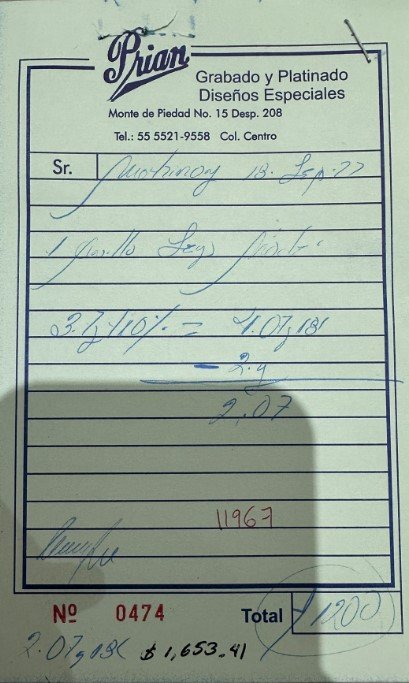 Prian
Grabado y Platinado
Diseños Especiales
Monte de Piedad No. 15 Desp. 208
Tel.: 55 5521-9558 Col. Centro
Sr. 13. Sep. 22
1
3.7g+10% = 4.07g 18k
- 2.g
2.07
11967
Nº 0474 Total $1200
2.07g 18k $1,653.41